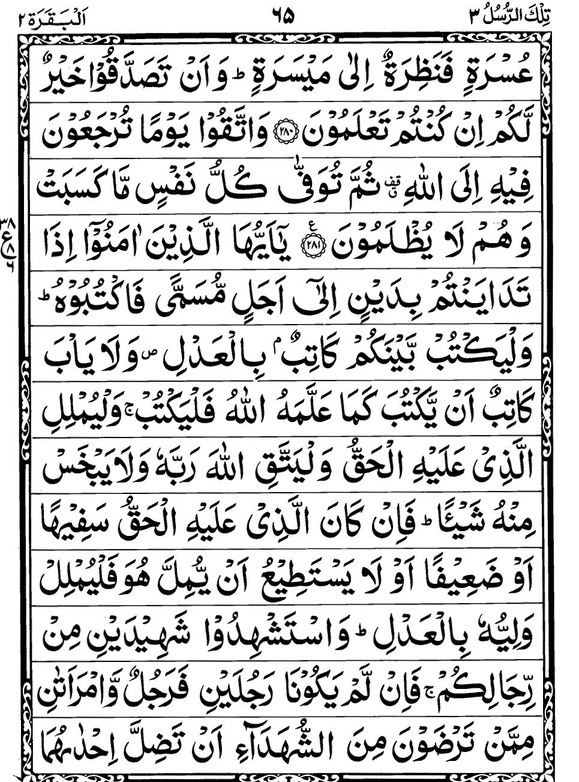 تِلْكَ الرُّسُلُ ٣ ٦٥ اَلْبَقَرَة ٢
عُسْرَةٍ فَنَظِرَةٌ اِلٰى مَيْسَرَةٍ ؕ وَ اَنْ تَصَدَّقُوْا خَيْرٌ
لَّكُمْ اِنْ كُنْتُمْ تَعْلَمُوْنَ ﴿۲۸۰﴾ وَاتَّقُوْا يَوْمًا تُرْجَعُوْنَ
فِيْهِ اِلَى اللّٰهِ ۟ قف ثُمَّ تُوَفّٰى كُلُّ نَفْسٍ مَّا كَسَبَتْ
وَ هُمْ لَا يُظْلَمُوْنَ ﴿۲۸۱﴾ ع يٰۤاَيُّهَا الَّذِيْنَ اٰمَنُوْۤا اِذَا
٣٨ ع ٨ ٦
تَدَايَنْتُمْ بِدَيْنٍ اِلٰۤى اَجَلٍ مُّسَمًّى فَاكْتُبُوْهُ ؕ
وَلْيَكْتُبْ بَّيْنَكُمْ كَاتِبٌۢ بِالْعَدْلِ ۪ وَلَا يَاْبَ
كَاتِبٌ اَنْ يَّكْتُبَ كَمَا عَلَّمَهُ اللّٰهُ فَلْيَكْتُبْ ۚ وَلْيُمْلِلِ
الَّذِيْ عَلَيْهِ الْحَقُّ وَلْيَتَّقِ اللّٰهَ رَبَّهٗ وَلَا يَبْخَسْ
مِنْهُ شَيْـًٔا ؕ فَاِنْ كَانَ الَّذِيْ عَلَيْهِ الْحَقُّ سَفِيْهًا
اَوْ ضَعِيْفًا اَوْ لَا يَسْتَطِيْعُ اَنْ يُّمِلَّ هُوَ فَلْيُمْلِلْ
وَلِيُّهٗ بِالْعَدْلِ ؕ وَاسْتَشْهِدُوْا شَهِيْدَيْنِ مِنْ
رِّجَالِكُمْ ۚ فَاِنْ لَّمْ يَكُوْنَا رَجُلَيْنِ فَرَجُلٌ وَّامْرَاَتٰنِ
مِمَّنْ تَرْضَوْنَ مِنَ الشُّهَدَآءِ اَنْ تَضِلَّ اِحْدٰىهُمَا